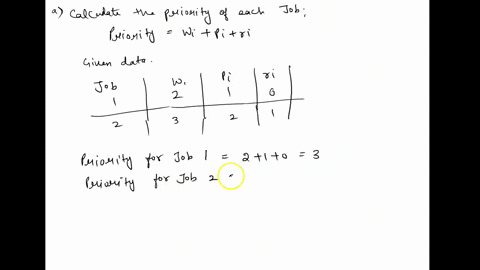 a) Calculate the priority of each Job;
Priority = Wi + Pi + ri
Given data.
Job Wi Pi ri
1 2 1 0
2 3 2 1
Priority for Job 1 = 2+1+0 = 3
Priority for Job 2 =